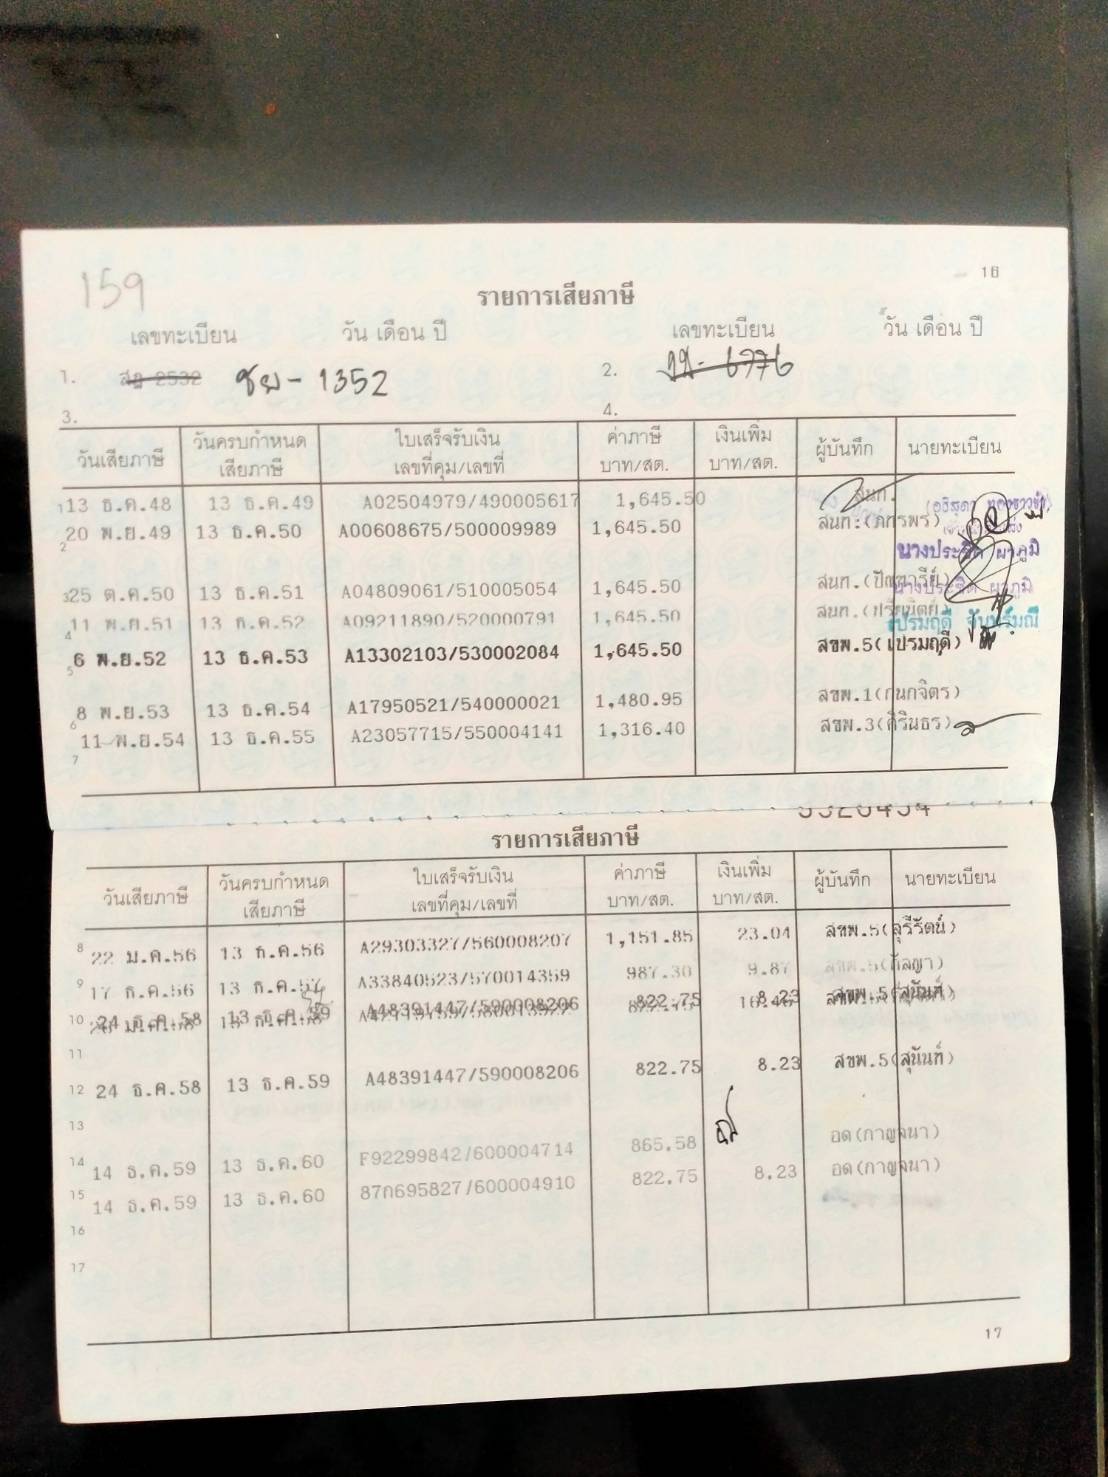 159
16
รายการเสียภาษี
เลขทะเบียน วัน เดือน ปี เลขทะเบียน วัน เดือน ปี
1. สฎ-2532 ชย-1352 2. 6776
3. 4.
วันเสียภาษี วันครบกำหนดเสียภาษี ใบเสร็จรับเงิน เลขที่คุม/เลขที่ ค่าภาษี บาท/สต. เงินเพิ่ม บาท/สต. ผู้บันทึก นายทะเบียน
1 13 ธ.ค.48 13 ธ.ค.49 A02504979/490005617 1,645.50 สนท.
2 20 พ.ย.49 13 ธ.ค.50 A00608675/500009989 1,645.50 สนท.(ภัทรพร)
นางประชิต ผาภูมิ
3 25 ต.ค.50 13 ธ.ค.51 A04809061/510005054 1,645.50 สนท. นางประชิต ผาภูมิ
4 11 พ.ย.51 13 ธ.ค.52 A09211890/520000791 1,645.50 สนท. เปรมฤดี จันทร์มณี
5 6 พ.ย.52 13 ธ.ค.53 A13302103/530002084 1,645.50 สขพ.5(เปรมฤดี)
6 8 พ.ย.53 13 ธ.ค.54 A17950521/540000021 1,480.95 สขพ.1(กนกจิตร)
7 11 พ.ย.54 13 ธ.ค.55 A23057715/550004141 1,316.40 สขพ.3(ศิรินธร)
รายการเสียภาษี
วันเสียภาษี วันครบกำหนดเสียภาษี ใบเสร็จรับเงิน เลขที่คุม/เลขที่ ค่าภาษี บาท/สต. เงินเพิ่ม บาท/สต. ผู้บันทึก นายทะเบียน
8 22 ม.ค.56 13 ธ.ค.56 A29303327/560008207 1,151.85 23.04 สขพ.5(สุรีรัตน์)
9 17 ธ.ค.56 13 ธ.ค.57 A33840523/570014359 987.30 9.87 สขพ.5(กัลญา)
10 24 ธ.ค.58 13 ธ.ค.59 A48391447/590008206 822.75 8.23 สขพ.5(สุนันท์)
11
12 24 ธ.ค.58 13 ธ.ค.59 A48391447/590008206 822.75 8.23 สขพ.5(สุนันท์)
13
14 14 ธ.ค.59 13 ธ.ค.60 F92299842/600004714 865.58 อด(กาญจนา)
15 14 ธ.ค.59 13 ธ.ค.60 87ก695827/600004910 822.75 8.23 อด(กาญจนา)
16
17
17